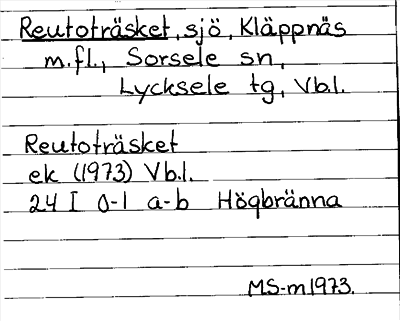 Reutoträsket, sjö, Kläppnäs
m.fl., Sorsele sn,
Lycksele tg, Vb.l.
Reutoträsket
ek (1973) Vb.l.
24 I 0-1 a-b Högbränna
MS-m 1973.